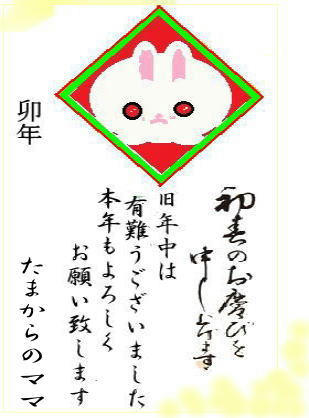 卯年
初春のお慶びを
申し上げます
旧年中は
有難うございました
本年もよろしく
お願い致します
たまからのママ